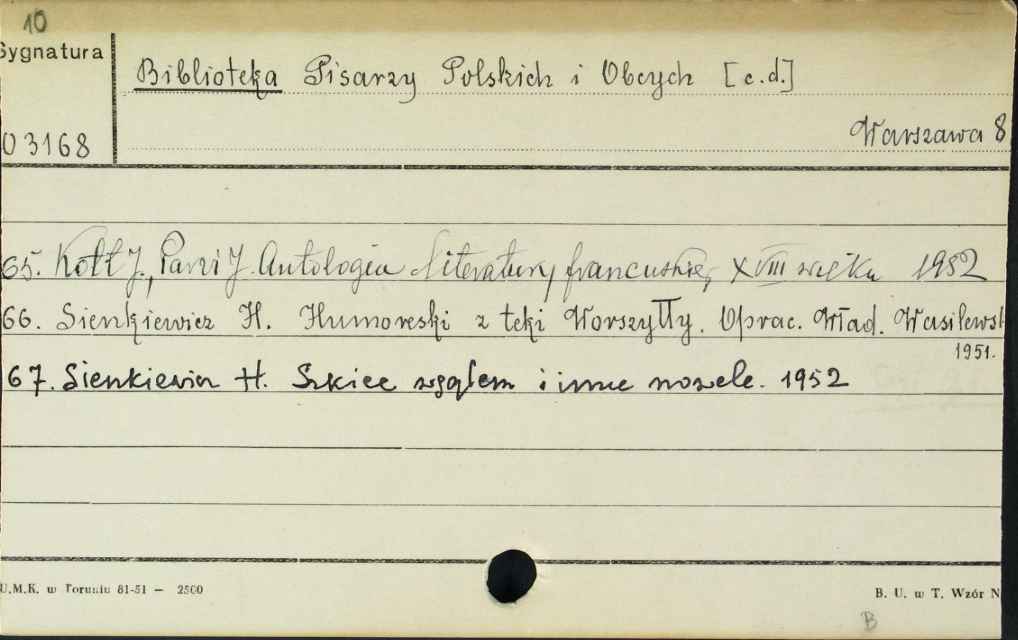 10
Sygnatura
Biblioteka Pisarzy Polskich i Obcych [c.d.]
03168
Warszawa 8
65. Kott J., Parvi J. Antologia literatury francuskiej XVIII wieku 1952
66. Sienkiewicz H. Humoreski z teki Worszyłły. Oprac. Wład. Wasilewsk
1951.
67. Sienkiewicz H. Szkice węglem i inne nowele. 1952
U.M.K. w Toruniu 81-51 — 2500
B. U. w T. Wzór N
B